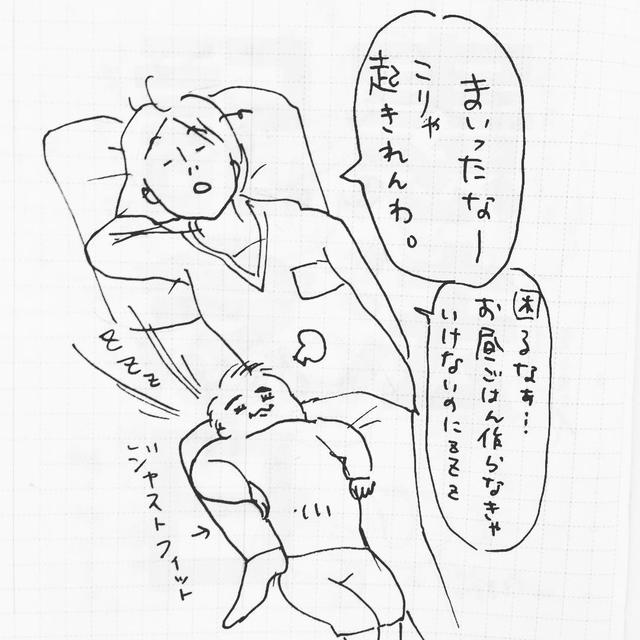 まいったなー
こりゃ
起きれんわ。
困るなぁ…
お昼ごはん作らなきゃ
いけないのにzzz
zzz
ジャストフィット